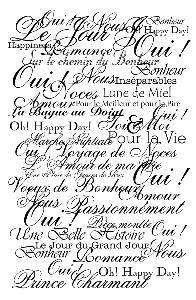 Oui! Nous Bonheur
Le Jour Oh! Happy Day!
Happiness Oui!
Romance
Sur le chemin du Bonheur
Oui! Nous Bonheur
Inséparables
Noces Lune de Miel
Amour Pour le Meilleur et pour le Pire
La Bague au Doigt
Oh! Happy Day! Toi & Moi
Marche Nuptiale Pour la Vie
Oui Voyage de Noces
Le Jour de ma Vie
Voeux de Bonheur Oui!
Nous Amour
Oui Passionnément
Pièce montée Oui!
Une Belle Histoire
Le Jour du Grand Jour
Bonheur Romance Nous
Oui! Oh! Happy Day!
Prince Charmant